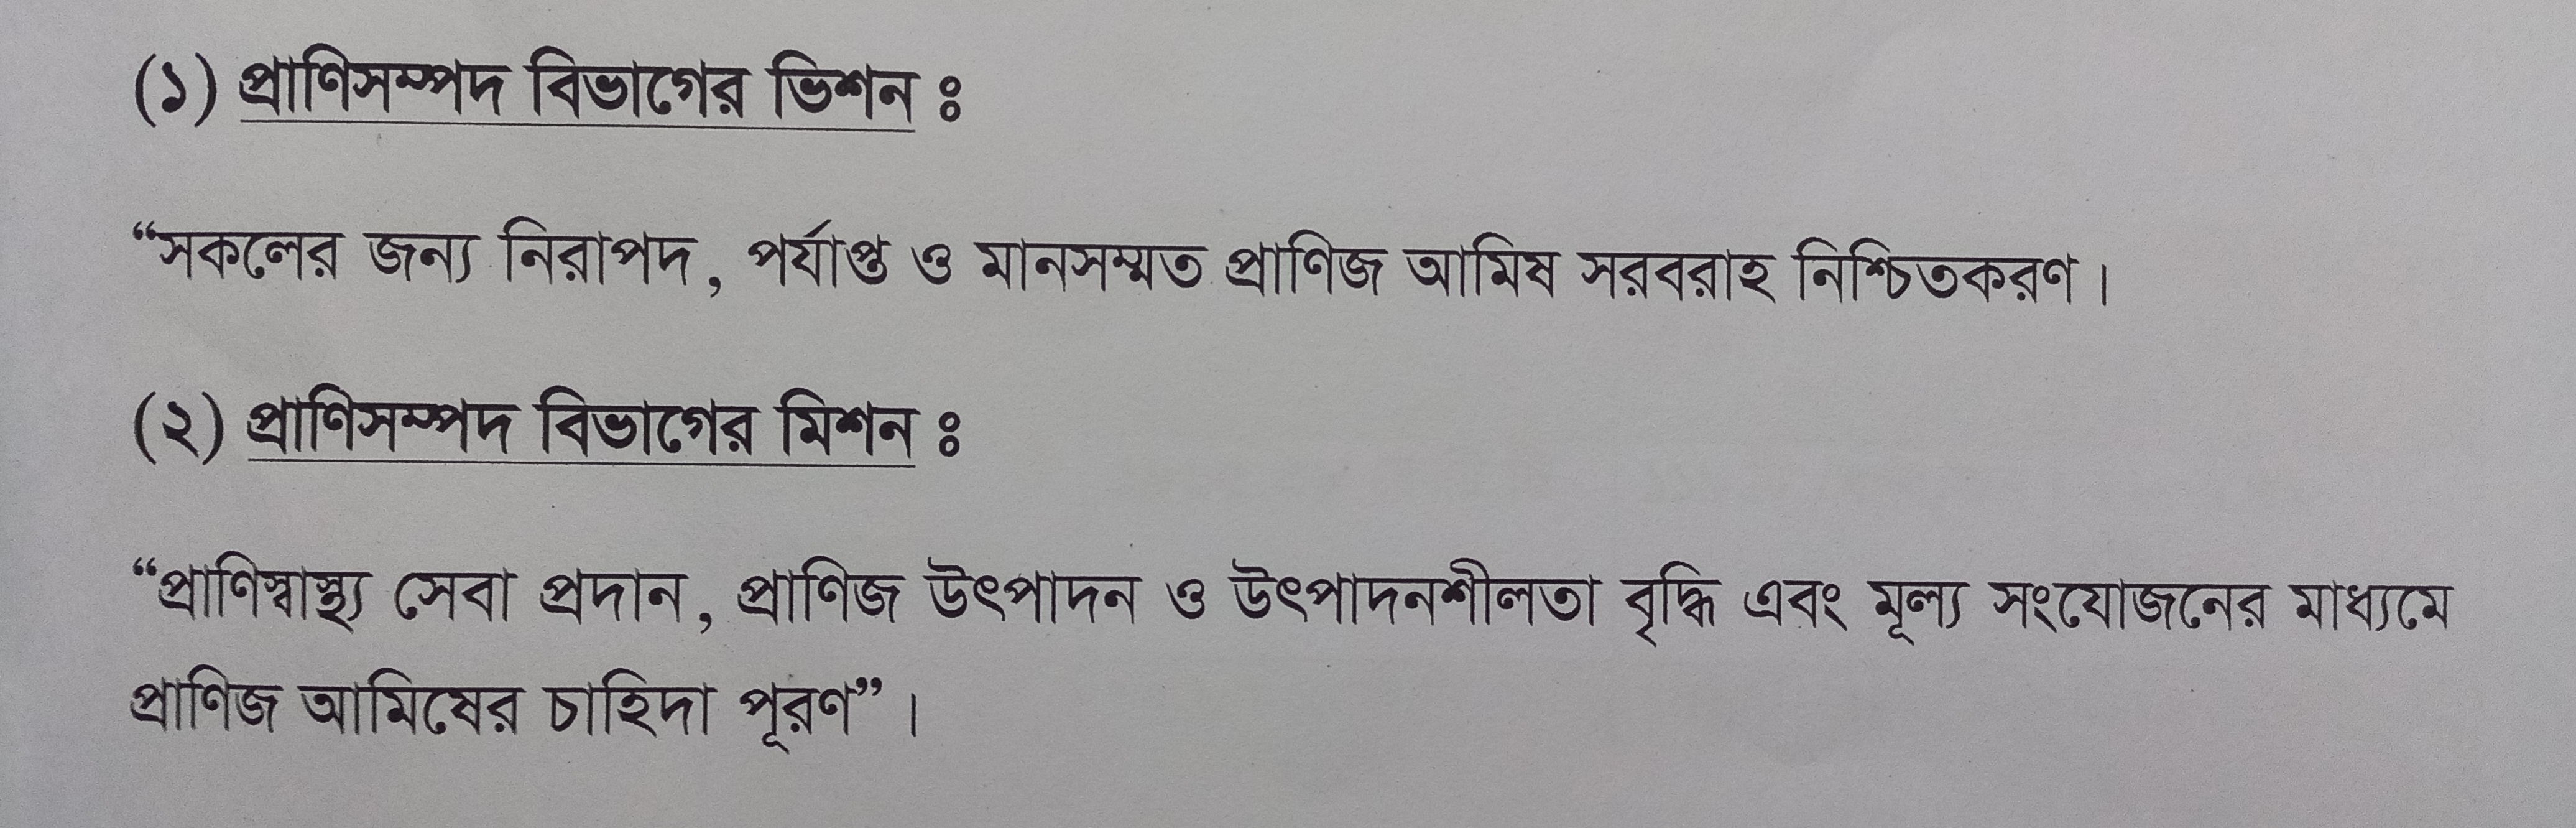 (১) প্রাণিসম্পদ বিভাগের ভিশন ঃ
“সকলের জন্য নিরাপদ, পর্যাপ্ত ও মানসম্মত প্রাণিজ আমিষ সরবরাহ নিশ্চিতকরণ।
(২) প্রাণিসম্পদ বিভাগের মিশন ঃ
“প্রাণিস্বাস্থ্য সেবা প্রদান, প্রাণিজ উৎপাদন ও উৎপাদনশীলতা বৃদ্ধি এবং মূল্য সংযোজনের মাধ্যমে
প্রাণিজ আমিষের চাহিদা পূরণ”।